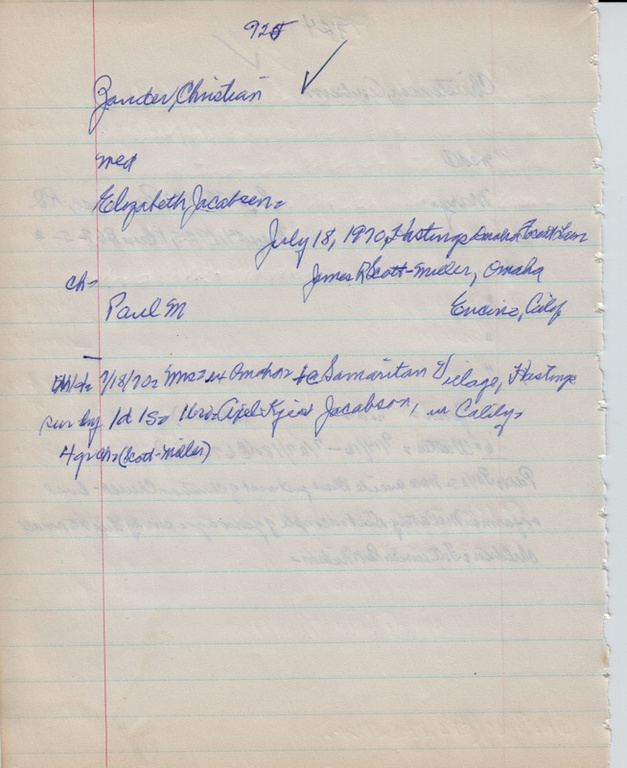 925
Zander, Christian
med
Elizabeth Jacobsen=
July 18, 1970, Hastings Omaha
James R Scott-Miller, Omaha
ch=
Paul M Encino, Calif
7/18/70= Mrs= ex Omaha to Samaritan Village, Hastings
sur by 1d 1s= 1bro= Axel Kjear Jacobson, in Calif=
4 grch= (Scott-Miller)